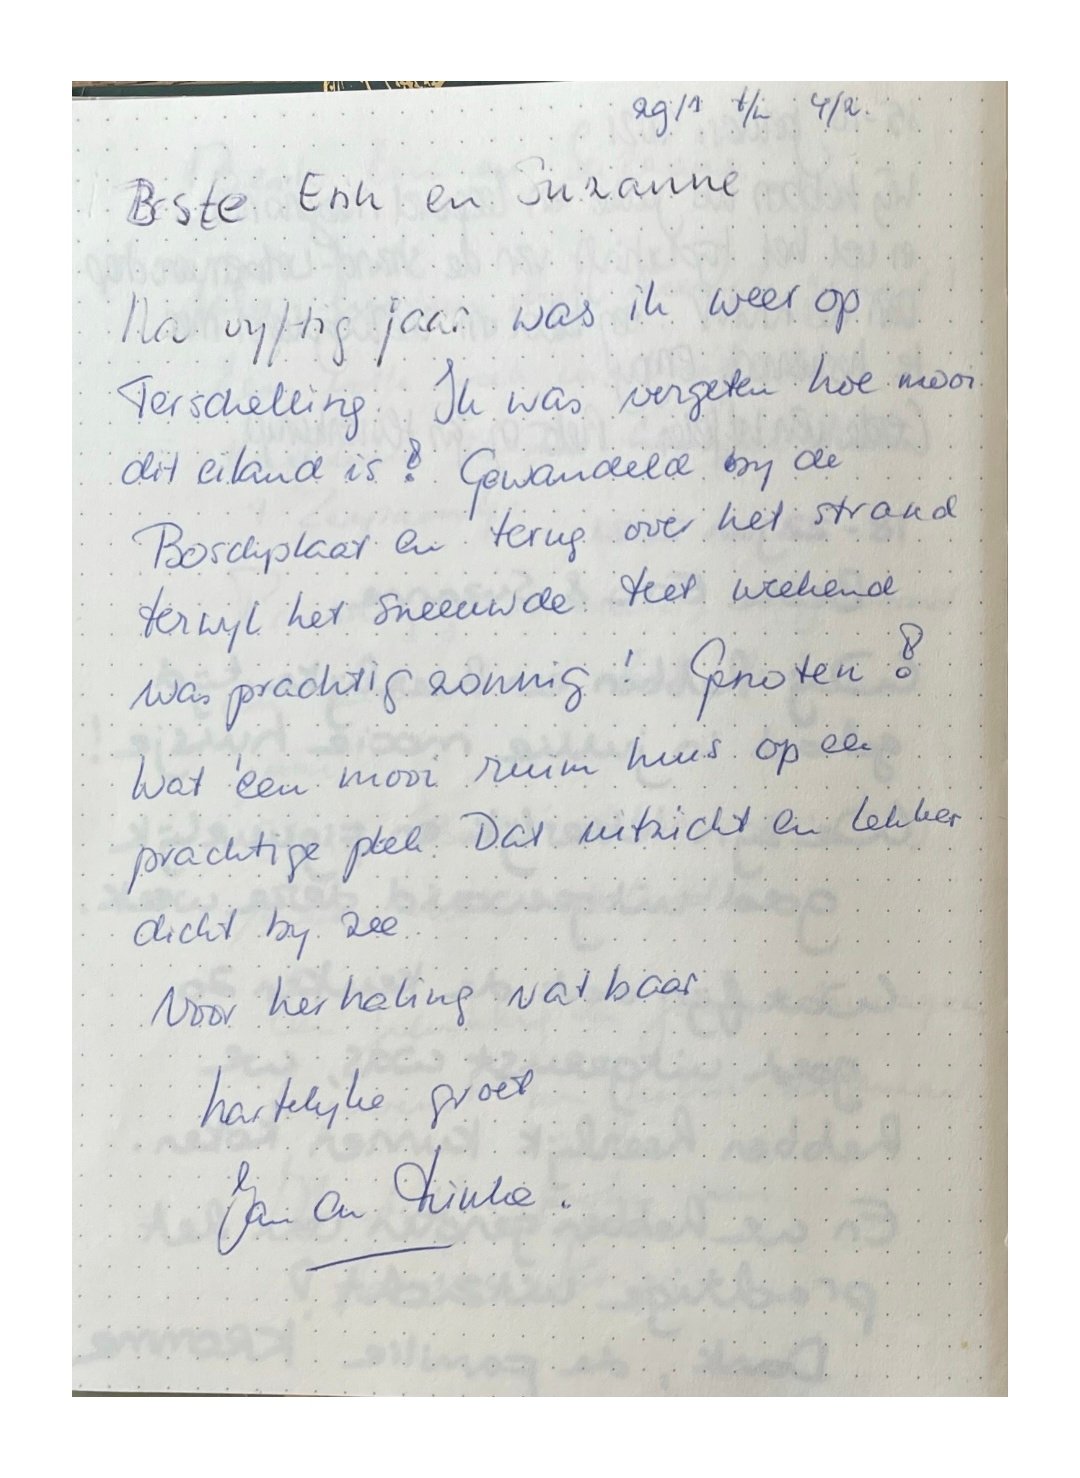 29/1 t/m 4/2.
Beste Erik en Suzanne
Na vijftig jaar was ik weer op
Terschelling. Ik was vergeten hoe mooi
dit eiland is! Gewandeld bij de
Boschplaat en terug over het strand
terwijl het sneeuwde. Het weekend
was prachtig zonnig! Genoten!
Wat een mooi ruim huis op een
prachtige plek. Dat uitzicht en lekker
dicht bij zee.
Voor herhaling vatbaar
hartelijke groet
Jan en